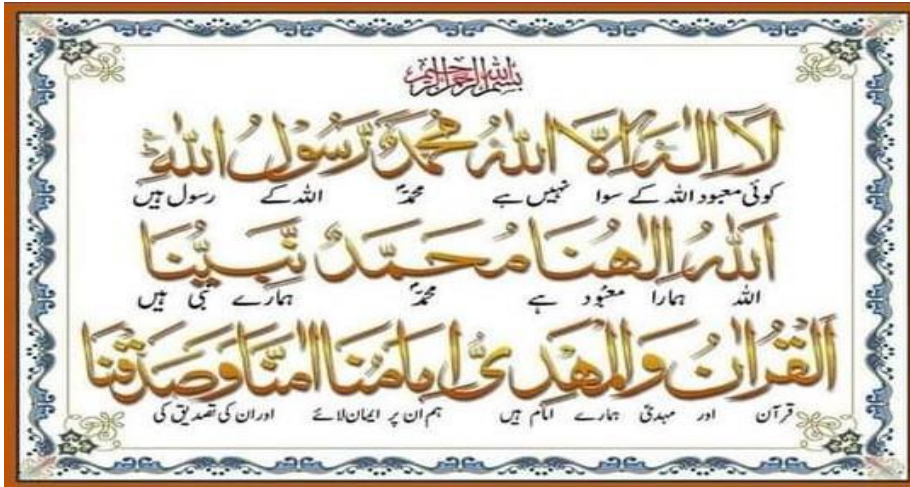 بسم الله الرحمن الرحيم
لَا اِلٰهَ اِلَّا اللّٰهُ مُحَمَّدٌ رَّسُوْلُ اللّٰهِ
کوئی معبود اللہ کے سوا نہیں ہے محمدؐ اللہ کے رسول ہیں
اَللّٰهُ اِلٰهُنَا مُحَمَّدٌ نَّبِيُّنَا
اللہ ہمارا معبُود ہے محمدؐ ہمارے نبی ہیں
اَلْقُرْاٰنُ وَالْمَهْدِىُّ اِمَامُنَا اٰمَنَّا وَصَدَّقْنَا
قرآن اور مہدیؑ ہمارے امام ہیں ہم ان پر ایمان لائے اور ان کی تصدیق کی